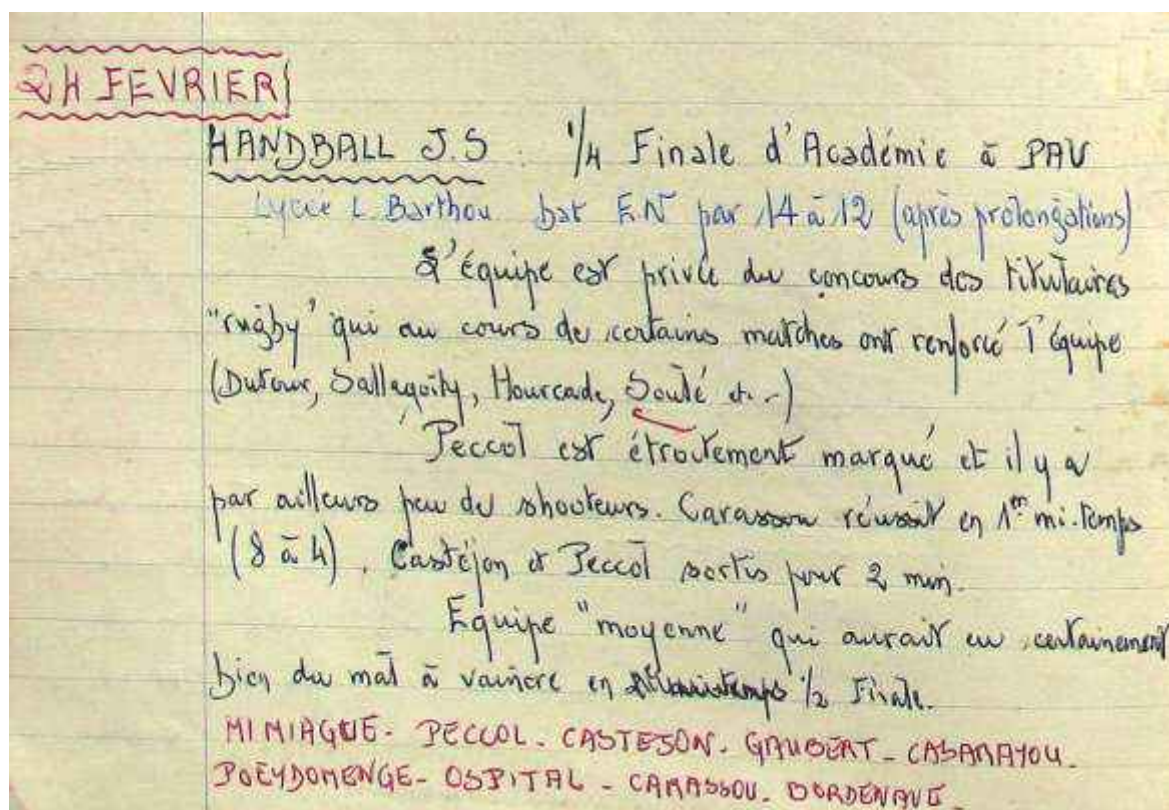 24 FEVRIER
HANDBALL J.S : 1/4 Finale d'Académie à PAU
Lycée L. Barthou bat E.N par 14 à 12 (après prolongations)
L'équipe est privée du concours des titulaires
"rugby" qui au cours de certains matches ont renforcé l'équipe
(Dufour, Sallagoïty, Hourcade, Soulé etc..)
Peccol est étroitement marqué et il y a
par ailleurs peu de shooteurs. Carassou réussit en 1ère mi-temps
(8 à 4). Castéjon et Peccol sortis pour 2 min.
Equipe "moyenne" qui aurait eu certainement
bien du mal à vaincre en 1/2 Finale.
MIMIAGUE - PECCOL - CASTEJON - GAUBERT - CASAMAYOU -
POEYDOMENGE - OSPITAL - CARASSOU - BORDENAVE -